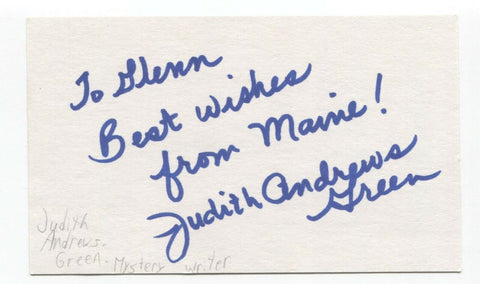 To Glenn
Best wishes
from Maine!
Judith Andrews
Green
Judith
Andrews-
Green- Mystery writer